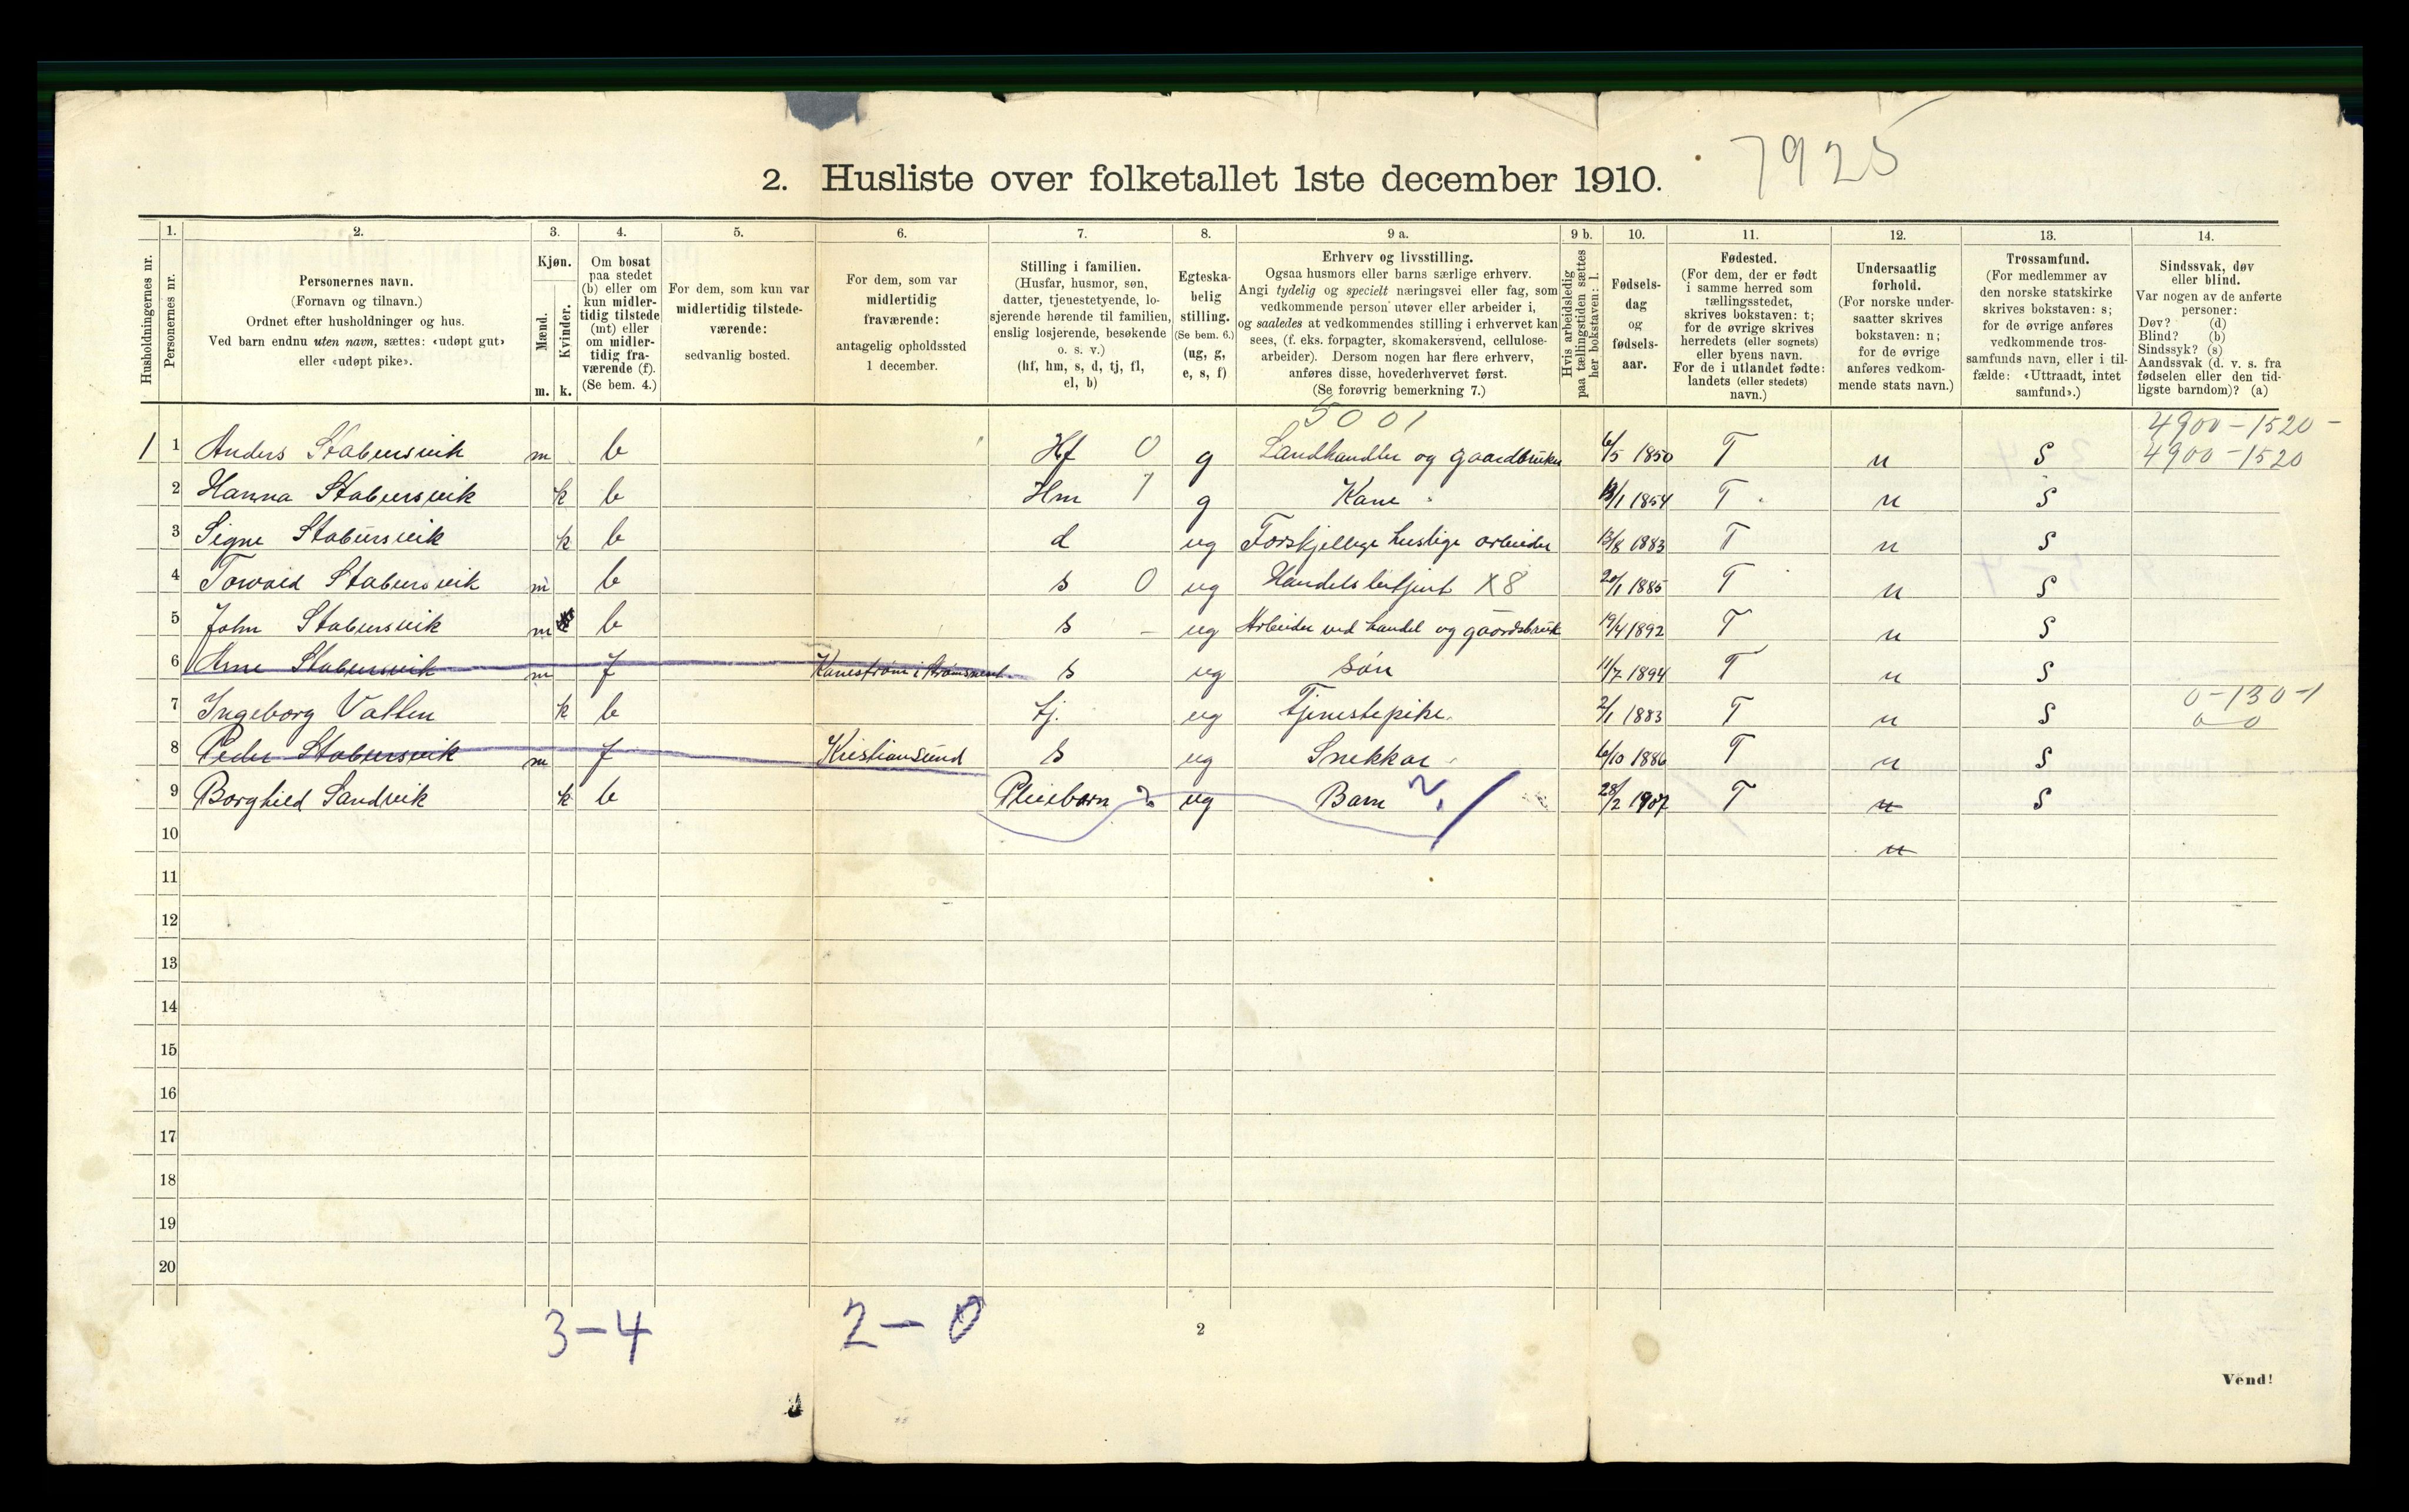 7925
2. Husliste over folketallet 1ste december 1910.
Husholdningernes nr.
1.
Personernes nr.
2.
Personernes navn.
(Fornavn og tilnavn.)
Ordnet efter husholdninger og hus.
Ved barn endnu uten navn, sættes: «udøpt gut»
eller «udøpt pike».
3.
Kjøn.
Mænd.
Kvinder.
m. k.
4.
Om bosat
paa stedet
(b) eller om
kun midler-
tidig tilstede
(mt) eller
om midler-
tidig fra-
værende (f).
(Se bem. 4.)
5.
For dem, som kun var
midlertidig tilstede-
værende:
sedvanlig bosted.
6.
For dem, som var
midlertidig
fraværende:
antagelig opholdssted
1 december.
7.
Stilling i familien.
(Husfar, husmor, søn,
datter, tjenestetyende, lo-
sjerende hørende til familien,
enslig losjerende, besøkende
o. s. v.)
(hf, hm, s, d, tj, fl,
el, b)
8.
Egteska-
belig
stilling.
(Se bem. 6.)
(ug, g,
e, s, f)
9 a.
Erhverv og livsstilling.
Ogsaa husmors eller barns særlige erhverv.
Angi tydelig og specielt næringsvei eller fag, som
vedkommende person utøver eller arbeider i,
og saaledes at vedkommendes stilling i erhvervet kan
sees, (f. eks. forpagter, skomakersvend, cellulose-
arbeider). Dersom nogen har flere erhverv,
anføres disse, hovederhvervet først.
(Se forøvrig bemerkning 7.)
9 b.
Hvis arbeidsledig
paa tællingstiden sættes
her bokstaven: l.
10.
Fødsels-
dag
og
fødsels-
aar.
11.
Fødested.
(For dem, der er født
i samme herred som
tællingsstedet,
skrives bokstaven: t;
for de øvrige skrives
herredets (eller sognets)
eller byens navn.
For de i utlandet fødte:
landets (eller stedets)
navn.)
12.
Undersaatlig
forhold.
(For norske under-
saatter skrives
bokstaven: n;
for de øvrige
anføres vedkom-
mende stats navn.)
13.
Trossamfund.
(For medlemmer av
den norske statskirke
skrives bokstaven: s;
for de øvrige anføres
vedkommende tros-
samfunds navn, eller i til-
fælde: «Uttraadt, intet
samfund».)
14.
Sindssvak, døv
eller blind.
Var nogen av de anførte
personer:
Døv? (d)
Blind? (b)
Sindssyk? (s)
Aandssvak (d. v. s. fra
fødselen eller den tid-
ligste barndom)? (a)
5001
4900-1520-
1 1 Anders Stabursvik m b Hf 0 g Landhandler og gaardbruker 6/5 1850 T n S 4900-1520
2 Hanna Stabursvik k b Hm 1 g Kone 13/1 1854 T n S
3 Signe Stabursvik k b d ug Forskjellige huslige arbeider 13/8 1883 T n S
4 Torvald Stabursvik m b s 0 ug Handelsbetjent X8 20/1 1885 T n S
5 John Stabursvik m b s - ug Arbeider ved handel og gaardsbruk 19/4 1892 T n S
6 Arne Stabursvik m f Kanestrøm i s ug søn 11/7 1894 T n S
0-130-1
7 Ingeborg Valten k b tj. ug Tjenestepike. 2/1 1883 T n S 0-0
8 Peder Stabursvik m f Kristiansund s ug Snekkar 6/10 1886 T n S
9 Borghild Sandvik k b Pleiebarn ug Barn 28/2 1907 T n S
10 n
11
12
13
14
15
16
17
18
19
20
3-4 2-0
2
Vend!